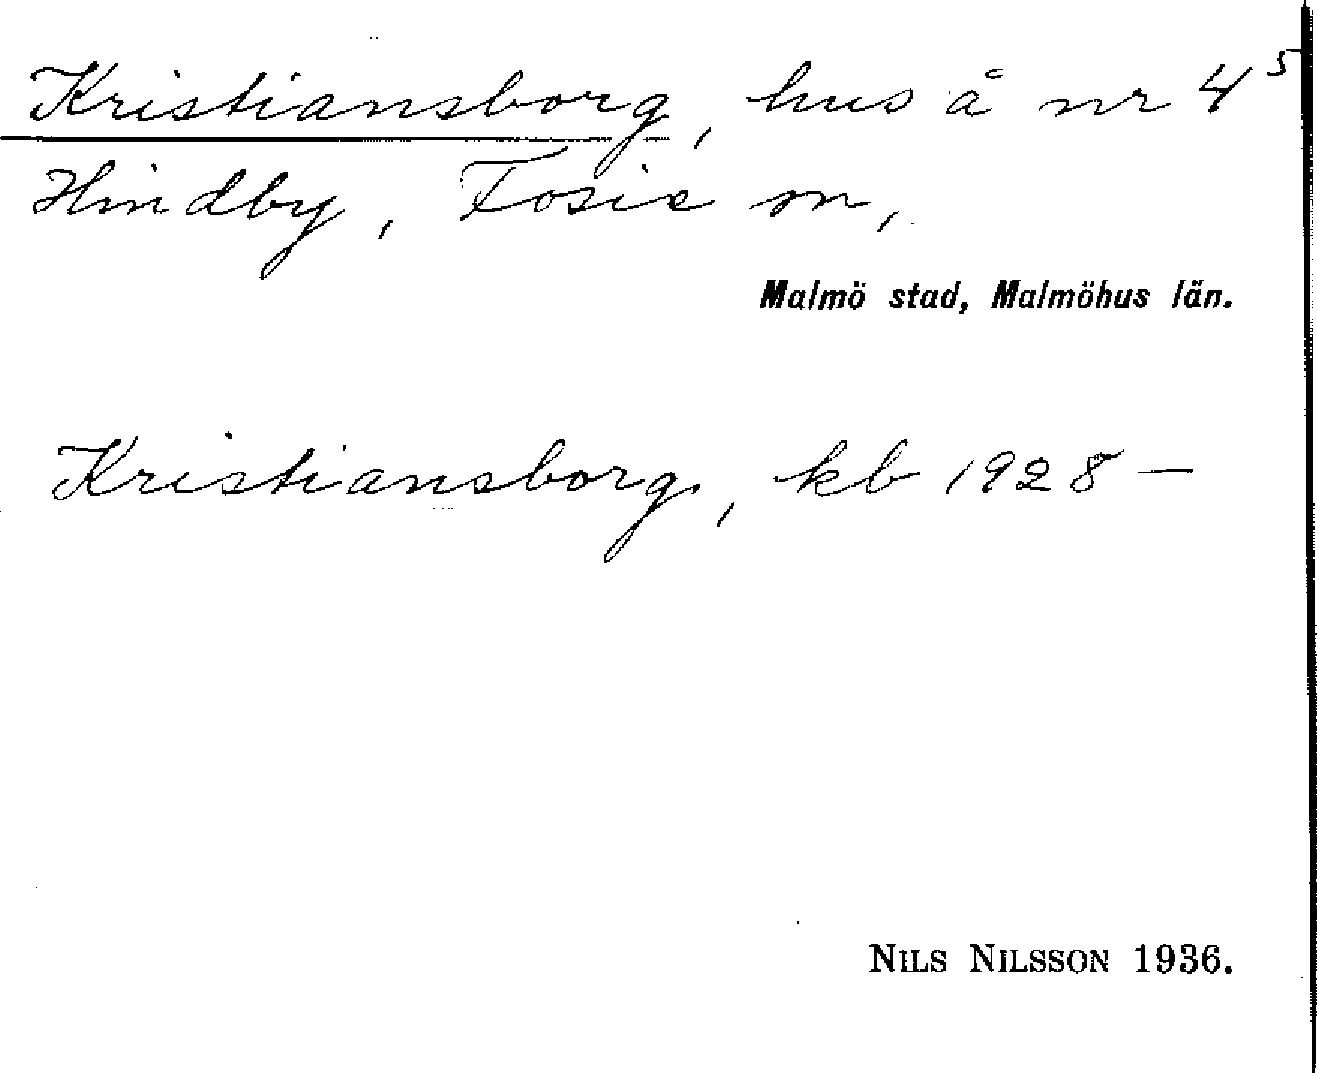 Kristiansborg, hus å nr 4⁵
Hindby, Fosie sn,
Malmö stad, Malmöhus län.
Kristiansborg, kb 1928 –
NILS NILSSON 1936.